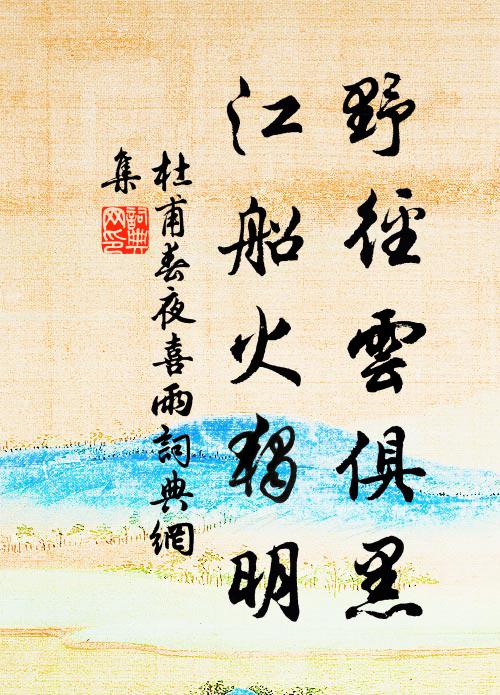 野徑雲俱黑
江船火獨明
杜甫春夜喜雨詞典網
集
詞典
网印